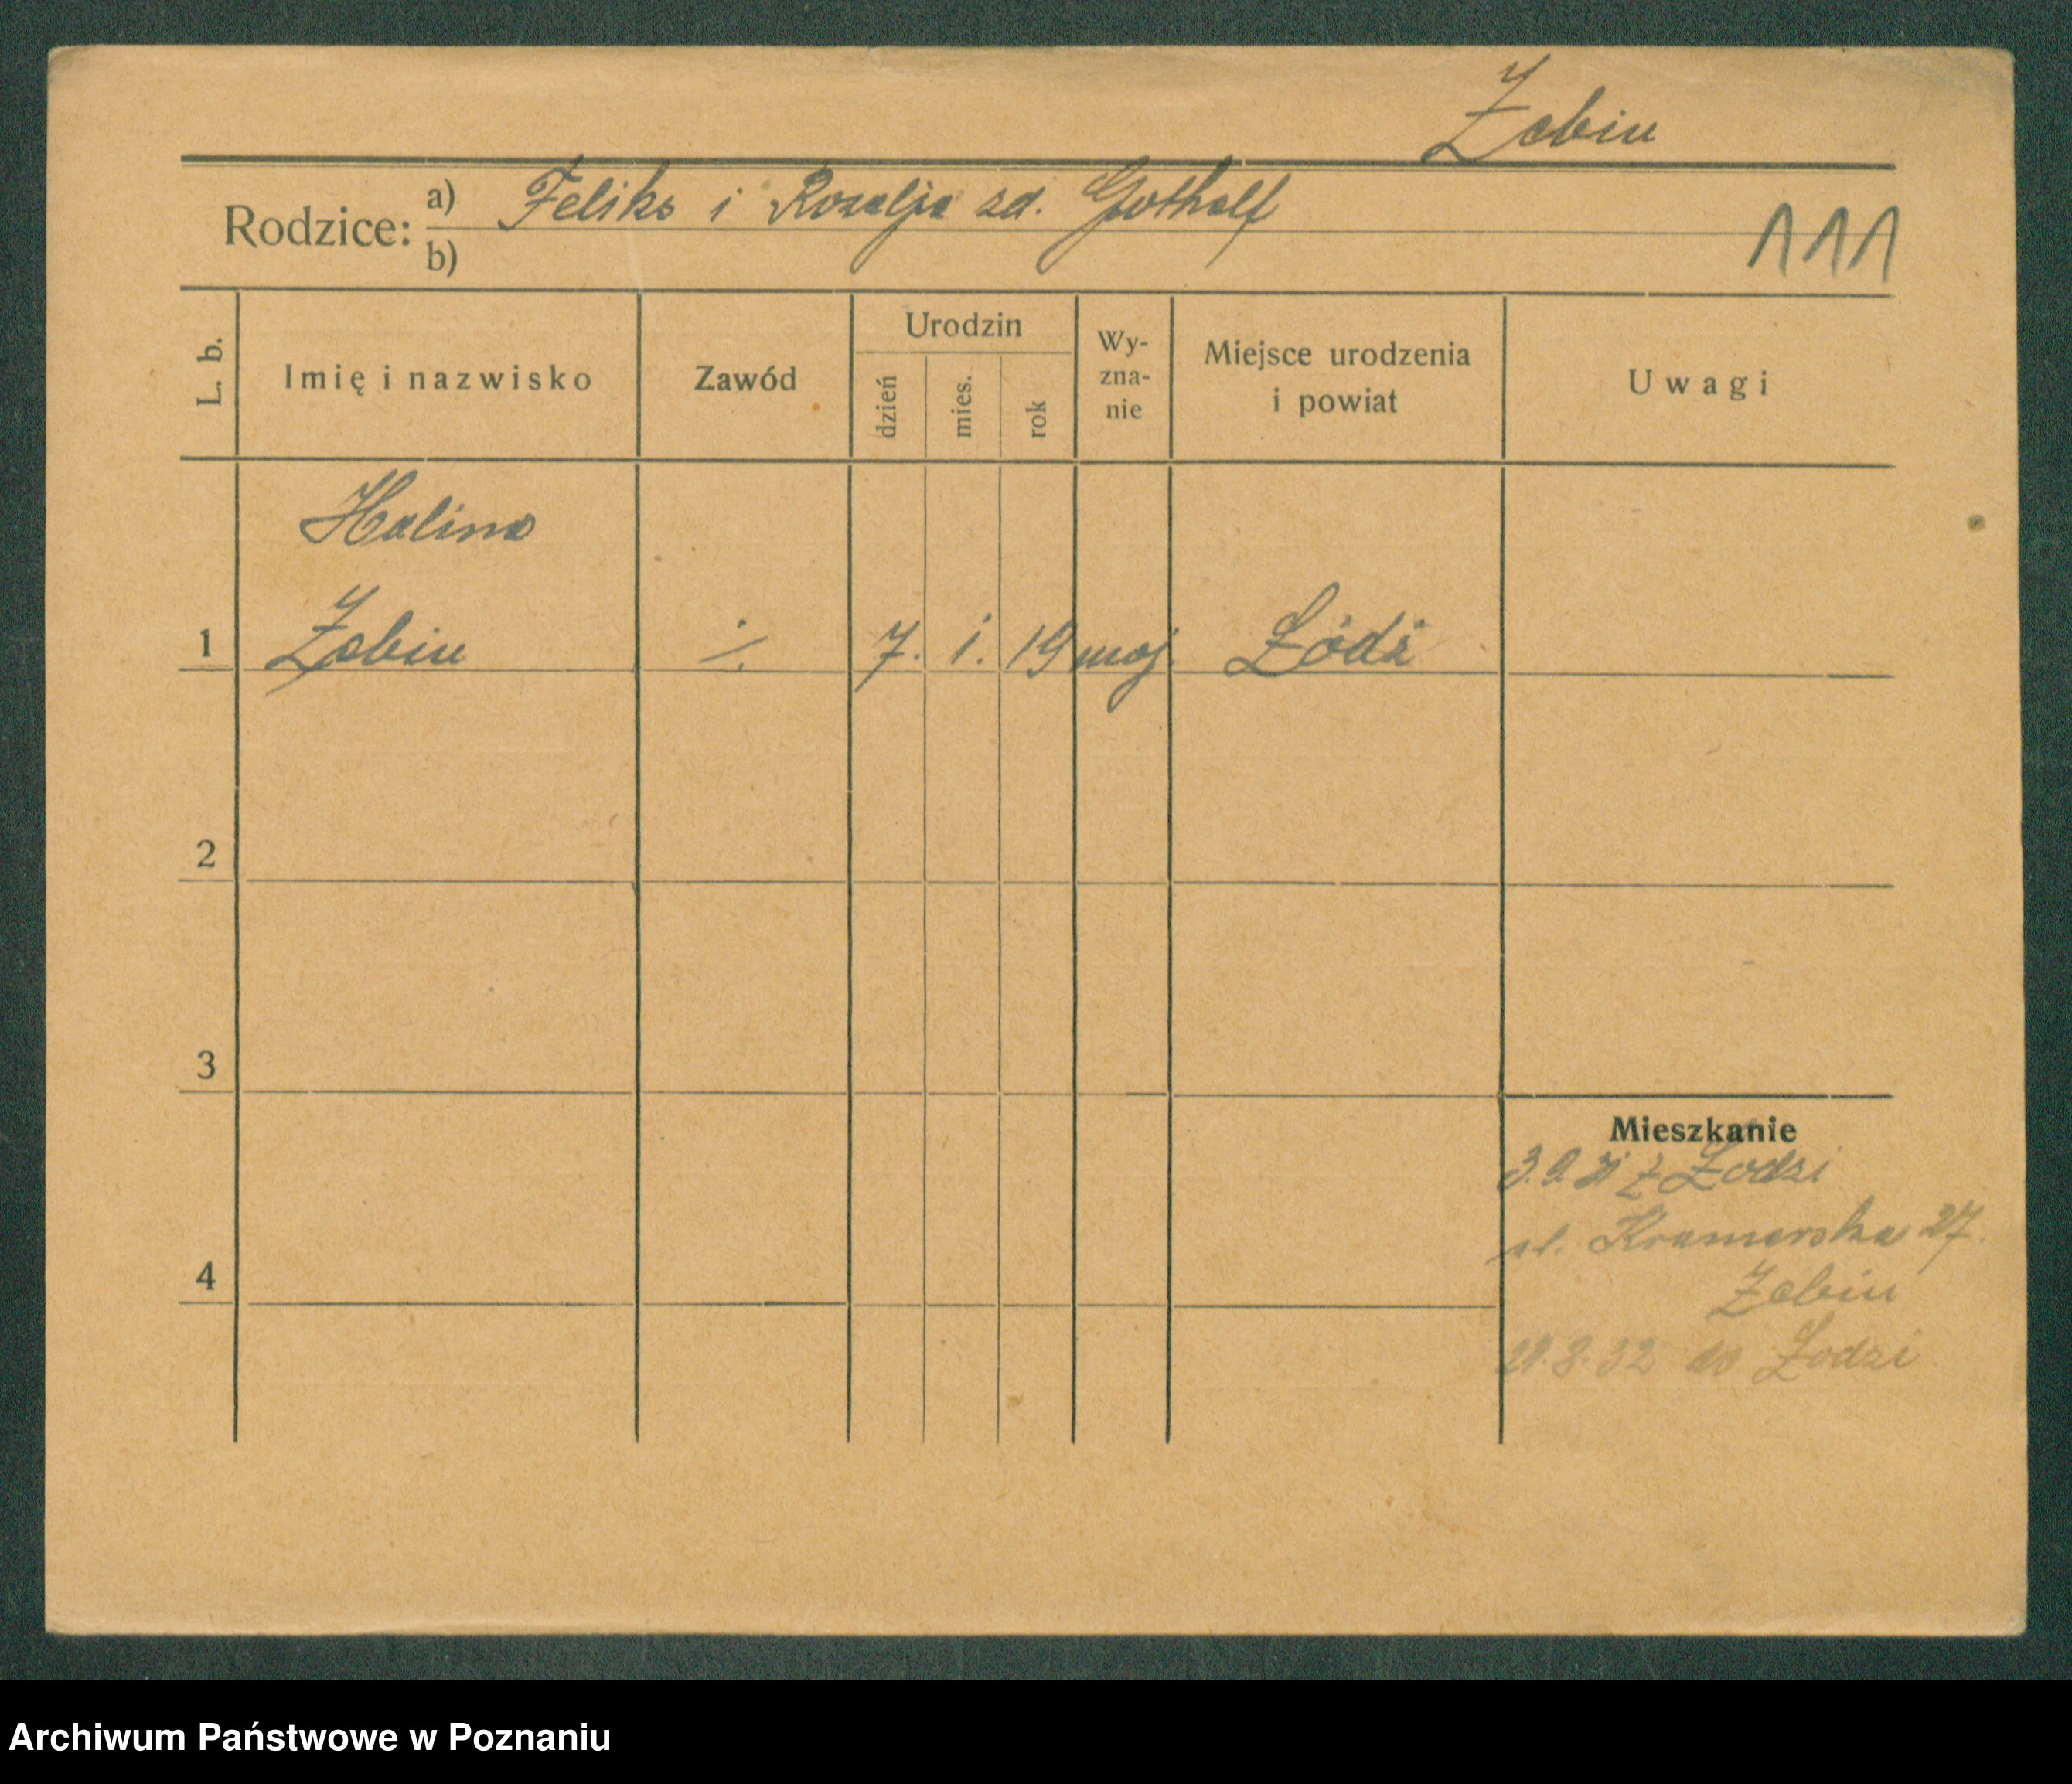 Żabiu
Rodzice: a) Feliks i Rozalja zd. Gothelf
b)
111
L. b. Imię i nazwisko Zawód Urodzin dzień mies. rok Wy-zna-nie Miejsce urodzenia i powiat Uwagi
Halina
1 Żabiu ./. 7. 1. 19 mojż. Łódź
2
3
4
Mieszkanie
3.9.31 z Łodzi
ul. Kramarska 27.
Żabiu
29.8.32 do Łodzi
Archiwum Państwowe w Poznaniu